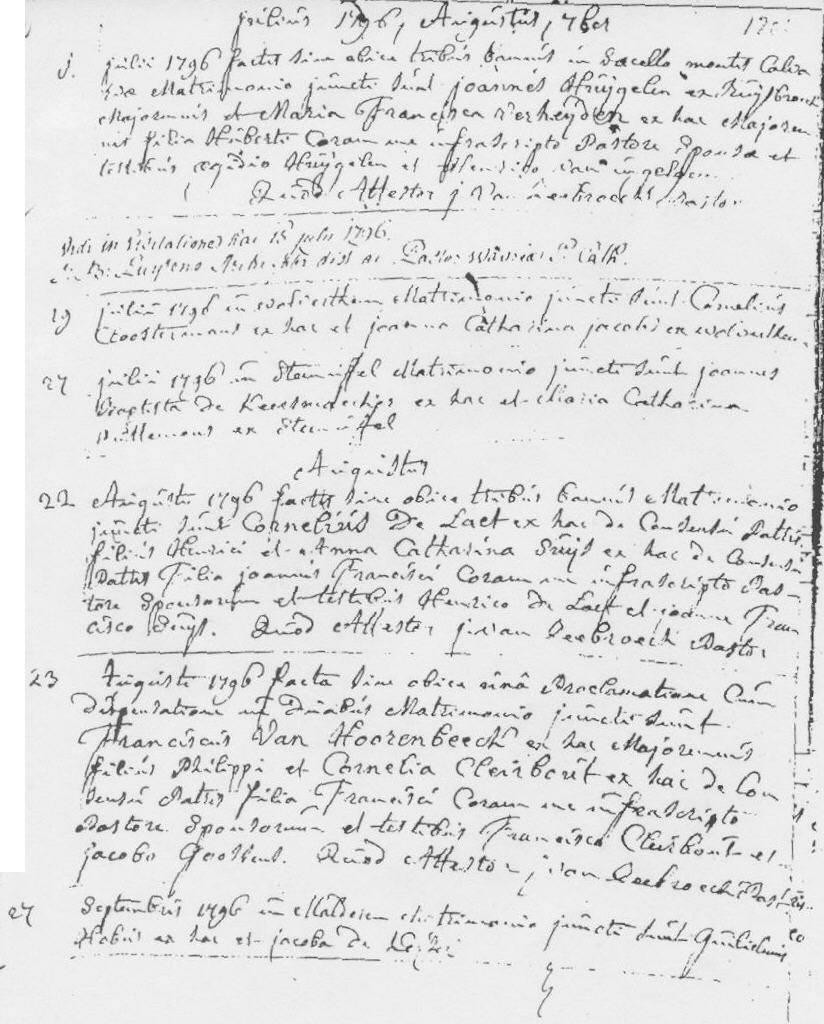 julius 1796, Augustus, 7ber
julii 1796 factis sine obice tribus bannis in Sacello montis Calva
riæ Matrimonio juncti sunt joannes Huÿgelen ex Ruÿsbroeck
Majorennis et Maria Francisca verheÿden ex hac Majoren
nis filia Huberti Coram me infrascripto Pastore Sponsæ et
testibus ægidio Huÿgelen et Henrico van ingelgem
Quod Attestor j Van Leebroeck Pastor
Vidi in Visitatione hac 15 julii 1796
19 julii 1796 in Matrimonio juncti sunt Cornelius
Cloostermans ex hac et joanna Catharina jacobs ex
27 julii 1796 in Steenuffel Matrimonio juncti sunt joannes
Baptista De Keersmaeckers ex hac et Maria Catharina
ex Steenuffel
Augustus
22 Augusti 1796 factis sine obice tribus bannis Matrimonio
juncti sunt Cornelius De Laet ex hac de Consensu Patris
filius Henrici et Anna Catharina Suÿs ex hac de Consensu
Patris Filia joannis Francisci Coram me infrascripto Pas-
tore Sponsorum et testibus Henrico De Laet et joanne Fran
cisco Suÿs. Quod Attestor j van Leebroeck Pastor
23 Augusti 1796 facta sine obice unâ Proclamatione Cum
dispensatione in Duabus Matrimonio juncti sunt
Franciscus Van Hoorenbeeck ex hac Majorennis
filius Philippi et Cornelia Cleirbout ex hac de Con
sensu Patris filia Francisci Coram me infrascripto
Pastore Sponsorum et testibus Francisco Cleirbout et
jacobo Goossens. Quod Attestor j van Leebroeck Pastor
27 Septembris 1796 in Malderen Matrimonio juncti sunt Guilielmus
ex hac et jacoba De